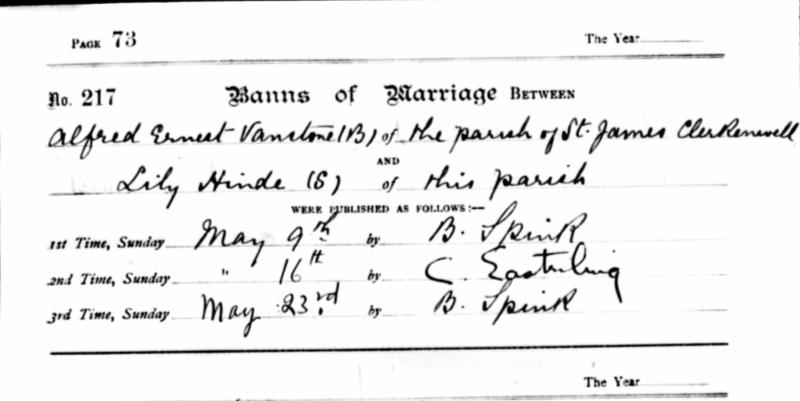 PAGE 73 The Year
No. 217 Banns of Marriage BETWEEN
Alfred Ernest Vanstone (B) of the parish of St. James Clerkenwell
AND
Lily Hinde (S) of this parish
WERE PUBLISHED AS FOLLOWS:—
1st Time, Sunday May 9th by B. Spink
2nd Time, Sunday " 16th by C. Easterling
3rd Time, Sunday May 23rd by B. Spink
The Year